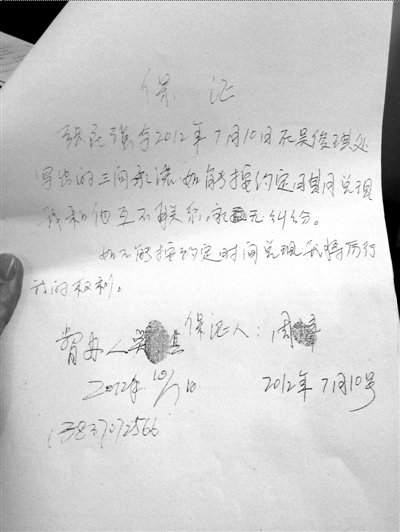 保 证
张 强于2012年7月10日在吴俊琪处
写出的三间承诺如能按约定日期间兑现
我和他互不联系,永无纠纷。
如不能按约定时间兑现我将历行
我的权利。
保证人:周
2012年10/7 2012年7月10号
13837072566